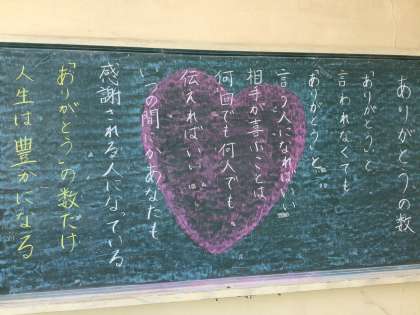 ありがとうの数
「ありがとう」と
言われなくても
「ありがとう」と
言う人になればいい
相手が喜ぶことは
何回でも何人でも
伝えればいい
いつの間にかあなたも
感謝される人になっている
「ありがとう」の数だけ
人生は豊かになる